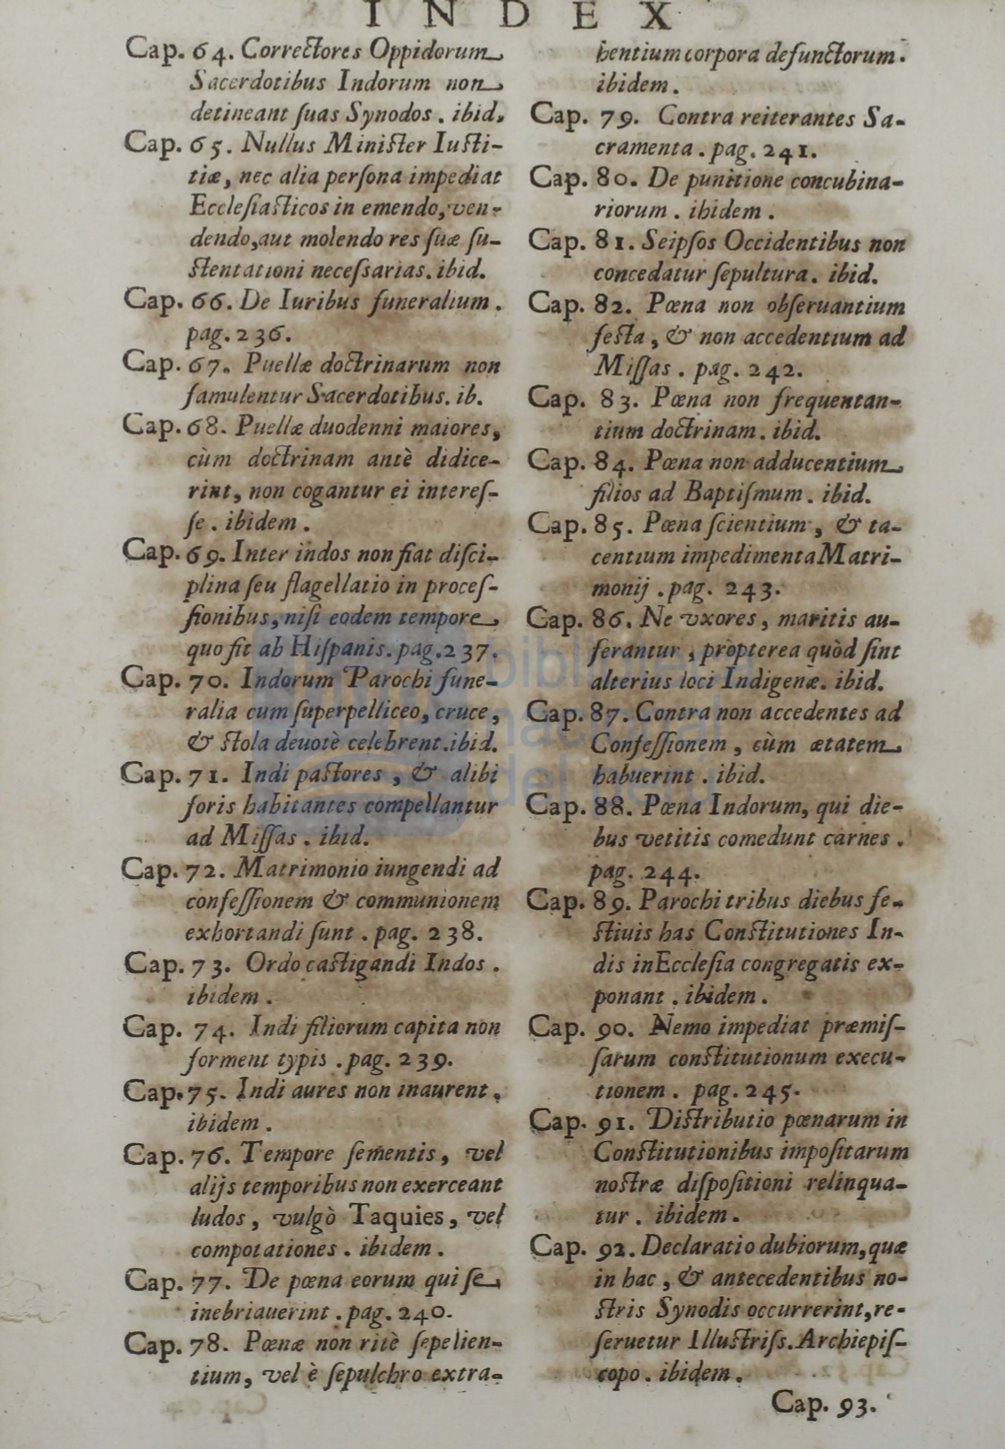 I N D E X
Cap. 64. Correctores Oppidorum
Sacerdotibus Indorum non
detineant ſuas Synodos . ibid.
Cap. 65. Nullus Miniſter Iuſti-
tiæ, nec alia perſona impediat
Eccleſiaſticos in emendo, ven-
dendo, aut molendo res ſuæ ſu-
ſtentationi neceſsarias. ibid.
Cap. 66. De Iuribus funeralium .
pag. 236.
Cap. 67. Puellæ doctrinarum non
famulentur Sacerdotibus. ib.
Cap. 68. Puellæ duodenni maiores,
cùm doctrinam antè didice-
rint, non cogantur ei intereſ-
ſe . ibidem .
Cap. 69. Inter indos non fiat diſci-
plina ſeu flagellatio in proceſ-
ſionibus, niſi eodem tempore
quo fit ab Hiſpanis. pag. 237.
Cap. 70. Indorum Parochi fune-
ralia cum ſuperpelliceo, cruce,
& ſtola deuotè celebrent. ibid.
Cap. 71. Indi paſtores , & alibi
foris habitantes compellantur
ad Miſſas . ibid.
Cap. 72. Matrimonio iungendi ad
confeſſionem & communionem
exhortandi ſunt . pag. 238.
Cap. 73. Ordo caſtigandi Indos .
ibidem .
Cap. 74. Indi filiorum capita non
forment typis . pag. 239.
Cap. 75. Indi aures non inaurent .
ibidem .
Cap. 76. Tempore ſementis, vel
alijs temporibus non exerceant
ludos , vulgò Taquies, vel
compotationes . ibidem .
Cap. 77. De pœna eorum qui ſe
inebriauerint . pag. 240.
Cap. 78. Pœnæ non ritè ſepelien-
tium, vel è ſepulchro extra-
hentium corpora defunctorum .
ibidem .
Cap. 79. Contra reiterantes Sa-
cramenta . pag. 241.
Cap. 80. De punitione concubina-
riorum . ibidem .
Cap. 81. Seipſos Occidentibus non
concedatur ſepultura . ibid.
Cap. 82. Pœna non obſeruantium
feſta , & non accedentium ad
Miſſas . pag. 242.
Cap. 83. Pœna non frequentan-
tium doctrinam . ibid.
Cap. 84. Pœna non adducentium
filios ad Baptiſmum . ibid.
Cap. 85. Pœna ſcientium , & ta-
centium impedimenta Matri-
monij . pag. 243.
Cap. 86. Ne vxores, maritis au-
ferantur , propterea quòd ſint
alterius loci Indigenæ. ibid.
Cap. 87. Contra non accedentes ad
Confeſſionem , cùm ætatem
habuerint . ibid.
Cap. 88. Pœna Indorum, qui die-
bus vetitis comedunt carnes .
pag. 244.
Cap. 89. Parochi tribus diebus fe-
ſtiuis has Conſtitutiones In-
dis in Eccleſia congregatis ex-
ponant . ibidem .
Cap. 90. Nemo impediat præmiſ-
ſarum conſtitutionum execu-
tionem . pag. 245.
Cap. 91. Diſtributio pœnarum in
Conſtitutionibus impoſitarum
noſtræ diſpoſitioni relinqua-
tur . ibidem .
Cap. 92. Declaratio dubiorum, quæ
in hac , & antecedentibus no-
ſtris Synodis occurrerint, re-
ſeruetur Illuſtriſs. Archiepiſ-
copo . ibidem .
Cap. 93.